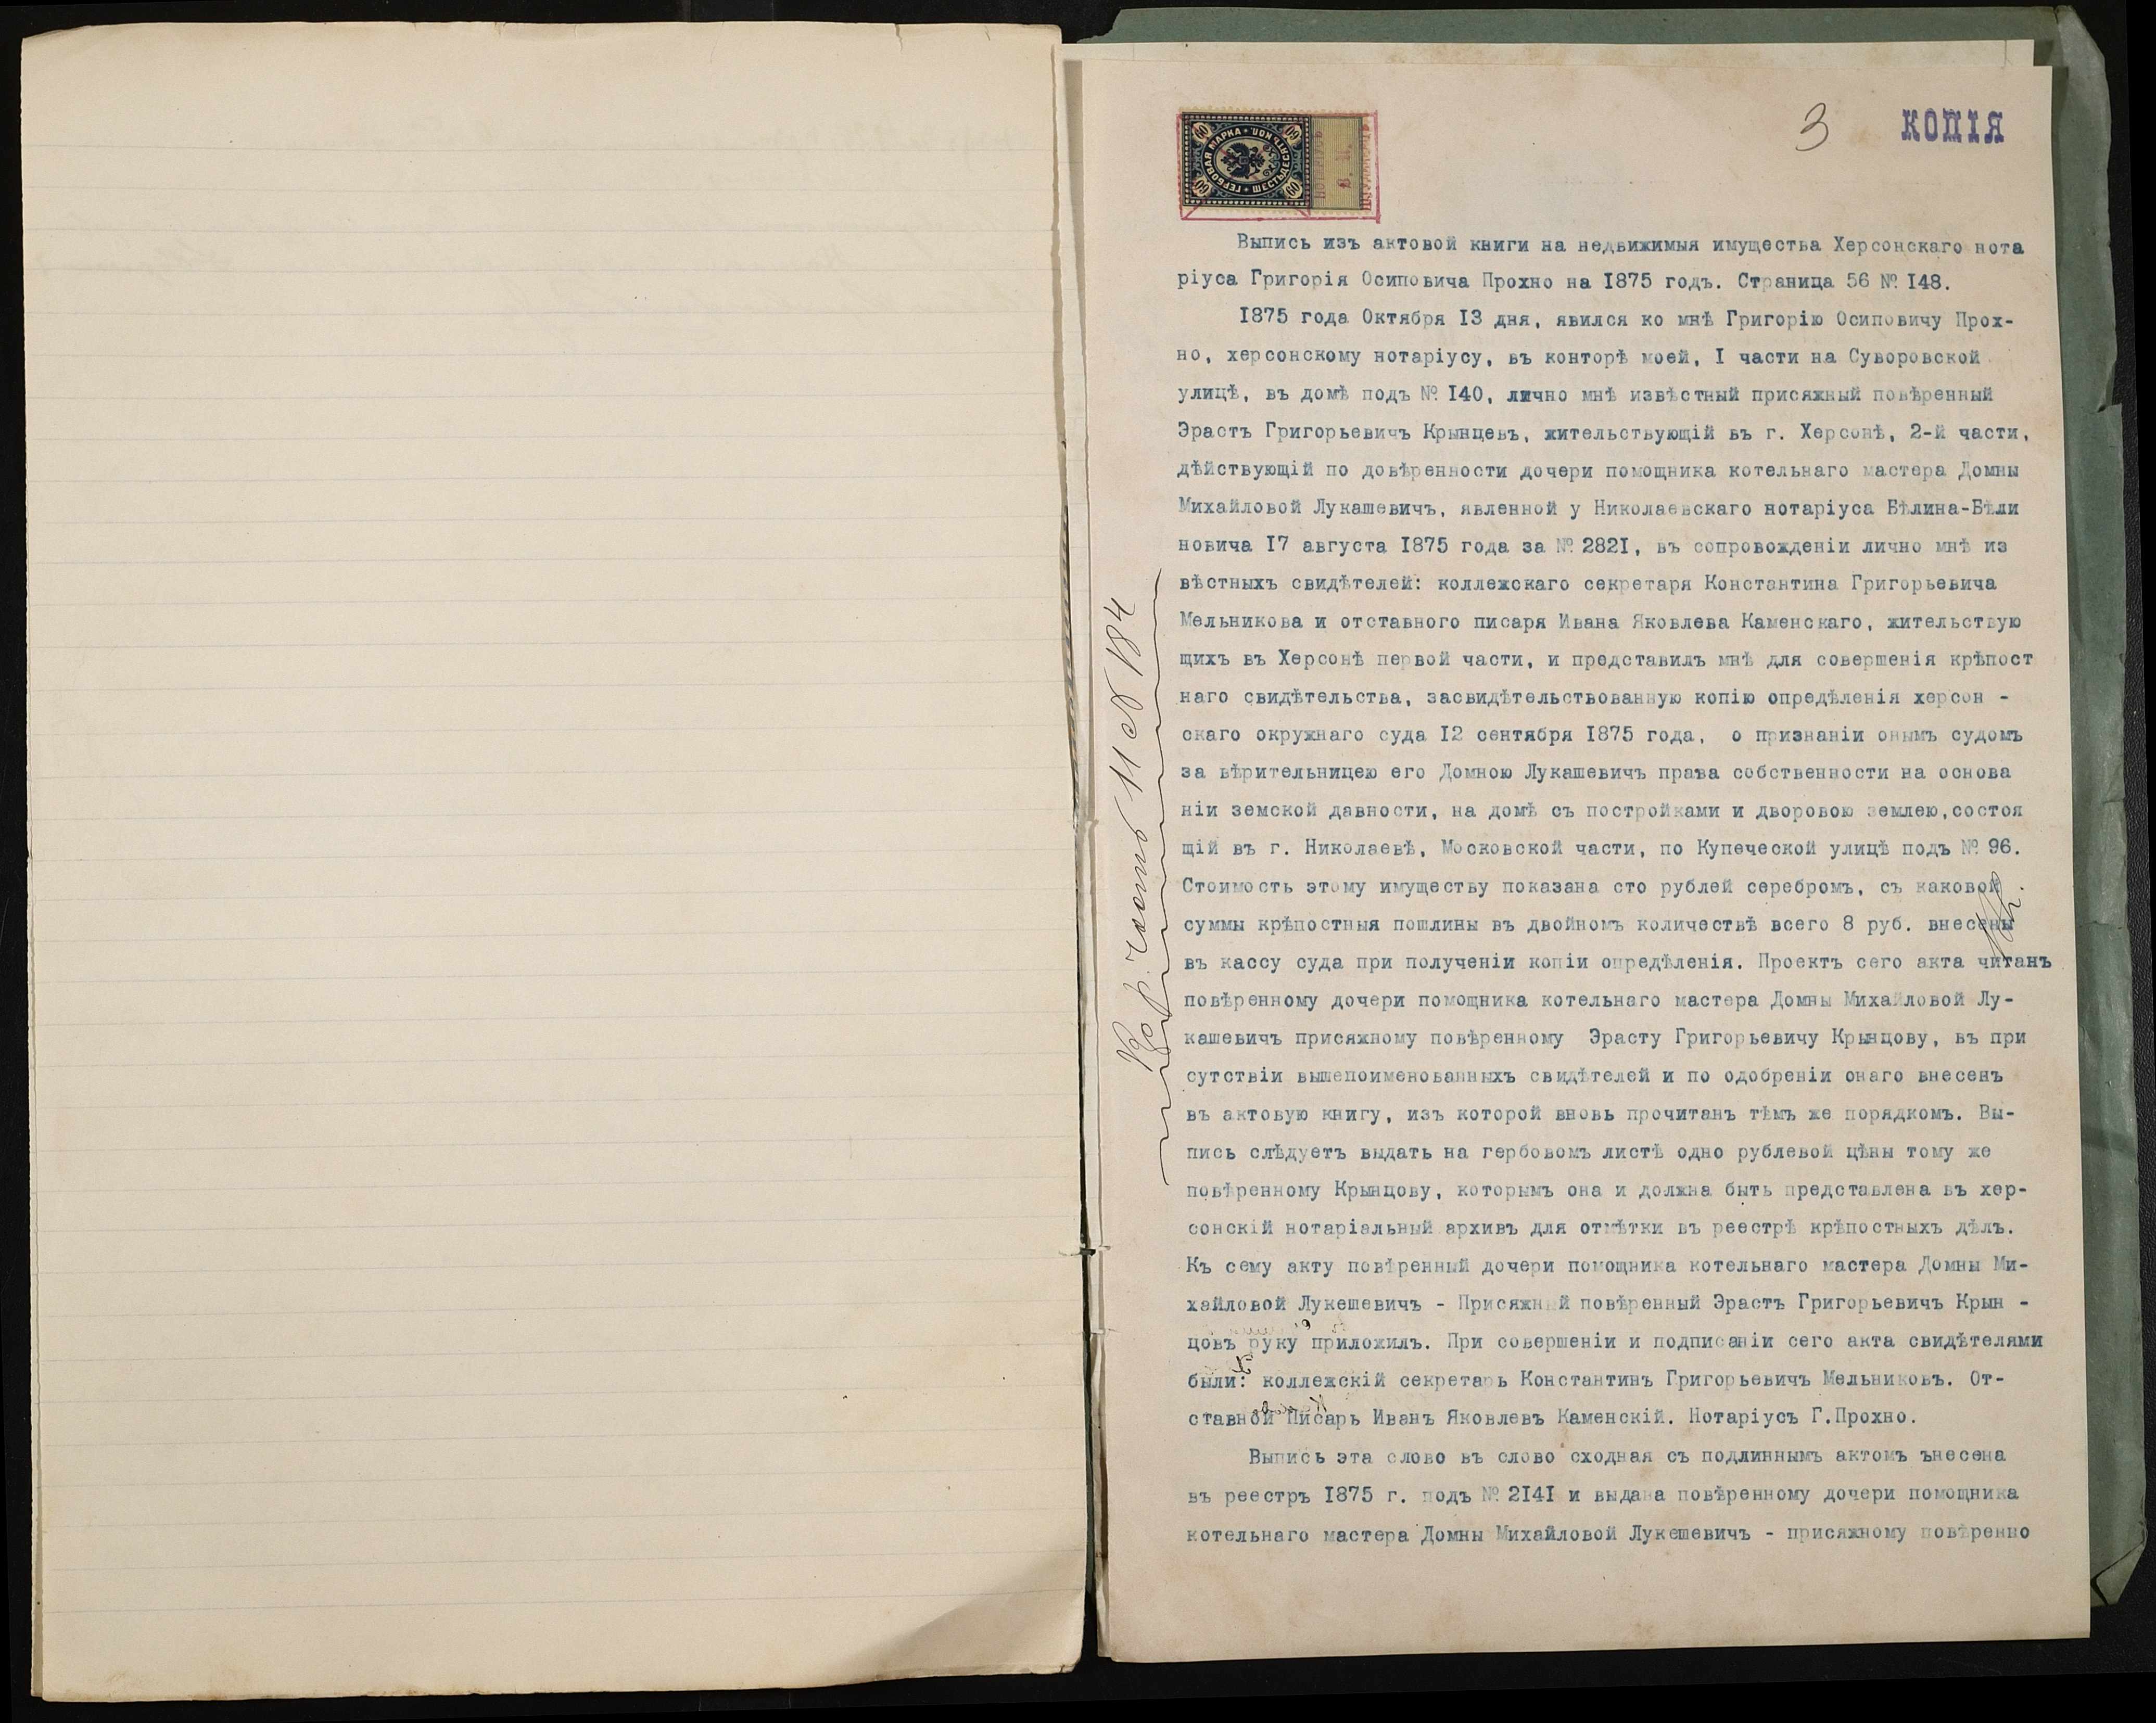 3
КОПІЯ
ГЕРБОВАЯ МАРКА
ШЕСТЬДЕСЯТЪ КОП.
60 60
60 60
Выпись изъ актовой книги на недвижимыя имущества Херсонскаго нота
ріуса Григорія Осиповича Прохно на 1875 годъ. Страница 56 № 148.
1875 года Октября 13 дня, явился ко мнѣ Григорію Осиповичу Прох-
но, херсонскому нотаріусу, въ конторѣ моей, I части на Суворовской
улицѣ, въ домѣ подъ № 140, лично мнѣ извѣстный присяжный повѣренный
Эрастъ Григорьевичъ Крынцевъ, жительствующій въ г. Херсонѣ, 2-й части,
дѣйствующій по довѣренности дочери помощника котельнаго мастера Домны
Михайловой Лукашевичъ, явленной у Николаевскаго нотаріуса Бѣлина-Бѣли
новича 17 августа 1875 года за № 2821, въ сопровожденіи лично мнѣ из
вѣстныхъ свидѣтелей: коллежскаго секретаря Константина Григорьевича
Мельникова и отставного писаря Ивана Яковлева Каменскаго, жительствую
щихъ въ Херсонѣ первой части, и представилъ мнѣ для совершенія крѣпост
наго свидѣтельства, засвидѣтельствованную копію опредѣленія херсон -
скаго окружнаго суда 12 сентября 1875 года, о признаніи онымъ судомъ
за вѣрительницею его Домною Лукашевичъ права собственности на основа
ніи земской давности, на домѣ съ постройками и дворовою землею, состоя
щій въ г. Николаевѣ, Московской части, по Купеческой улицѣ подъ № 96.
Стоимость этому имуществу показана сто рублей серебромъ, съ каковой
суммы крѣпостныя пошлины въ двойномъ количествѣ всего 8 руб. внесены
въ кассу суда при полученіи копіи опредѣленія. Проектъ сего акта читанъ
повѣренному дочери помощника котельнаго мастера Домны Михайловой Лу-
кашевичъ присяжному повѣренному Эрасту Григорьевичу Крынцову, въ при
сутствіи вышепоименованныхъ свидѣтелей и по одобреніи онаго внесенъ
въ актовую книгу, изъ которой вновь прочитанъ тѣмъ же порядкомъ. Вы-
пись слѣдуетъ выдать на гербовомъ листѣ одно рублевой цѣны тому же
повѣренному Крынцову, которымъ она и должна быть представлена въ хер-
сонскій нотаріальный архивъ для отмѣтки въ реестрѣ крѣпостныхъ дѣлъ.
Къ сему акту повѣренный дочери помощника котельнаго мастера Домны Ми-
хайловой Лукешевичъ - Присяжный повѣренный Эрастъ Григорьевичъ Крын -
цовъ руку приложилъ. При совершеніи и подписаніи сего акта свидѣтелями
были: коллежскій секретарь Константинъ Григорьевичъ Мельниковъ. От-
ставной Писарь Иванъ Яковлевъ Каменскій. Нотаріусъ Г.Прохно.
Выпись эта слово въ слово сходная съ подлиннымъ актомъ ънесена
въ реестръ 1875 г. подъ № 2141 и выдана повѣренному дочери помощника
котельнаго мастера Домны Михайловой Лукешевичъ - присяжному повѣренно